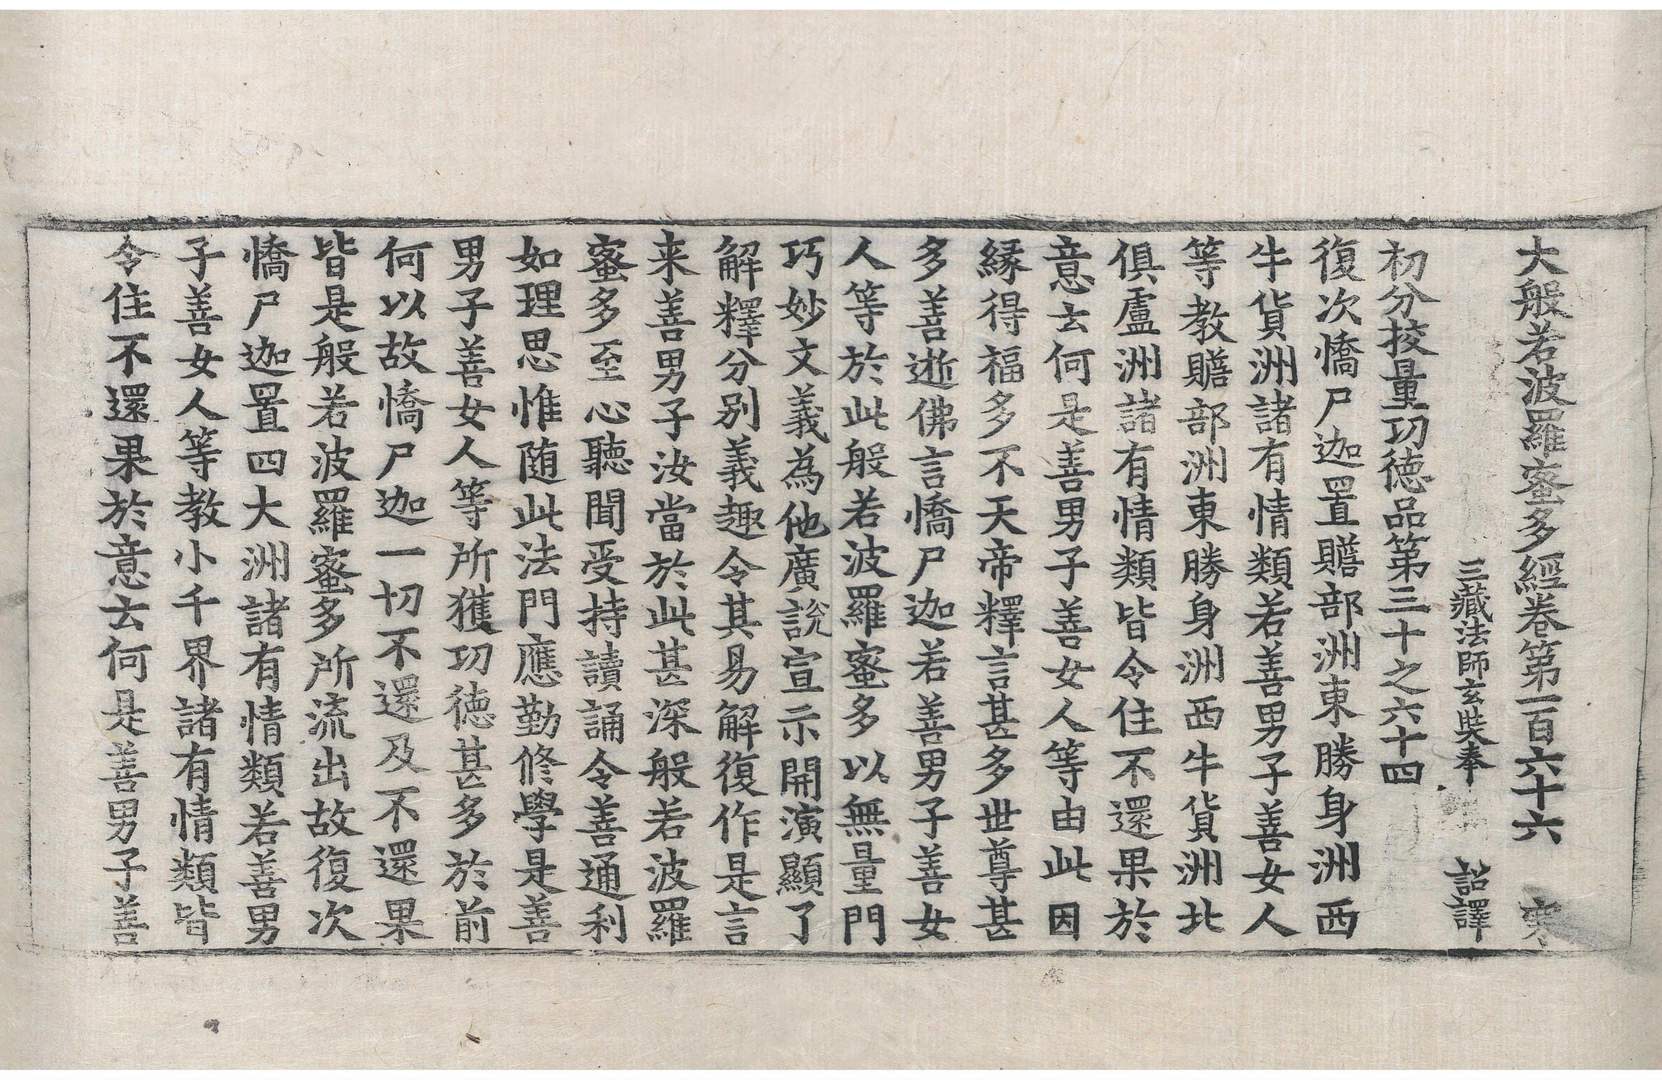 大般若波羅蜜多經卷第一百六十六 寒
三藏法師玄奘奉 詔譯
初分挍量功德品第三十之六十四
復次憍尸迦置贍部洲東勝身洲西
牛貨洲諸有情類若善男子善女人
等教贍部洲東勝身洲西牛貨洲北
俱盧洲諸有情類皆令住不還果於
意云何是善男子善女人等由此因
緣得福多不天帝釋言甚多世尊甚
多善逝佛言憍尸迦若善男子善女
人等於此般若波羅蜜多以無量門
巧妙文義為他廣說宣示開演顯了
解釋分別義趣令其易解復作是言
来善男子汝當於此甚深般若波羅
蜜多至心聽聞受持讀誦令善通利
如理思惟随此法門應勤修學是善
男子善女人等所獲功德甚多於前
何以故憍尸迦一切不還及不還果
皆是般若波羅蜜多所流出故復次
憍尸迦置四大洲諸有情類若善男
子善女人等教小千界諸有情類皆
令住不還果於意云何是善男子善